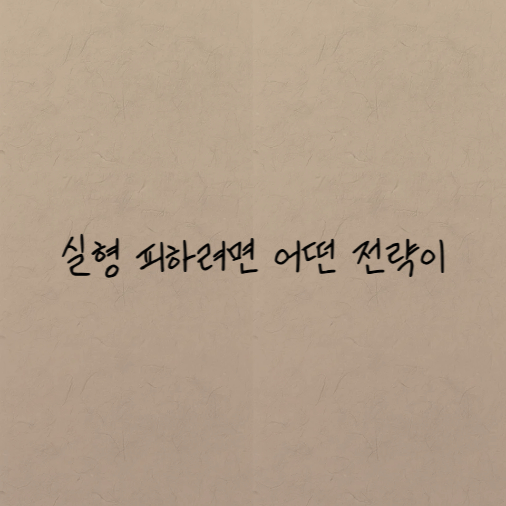 실형 피하려면 어떤 전략이